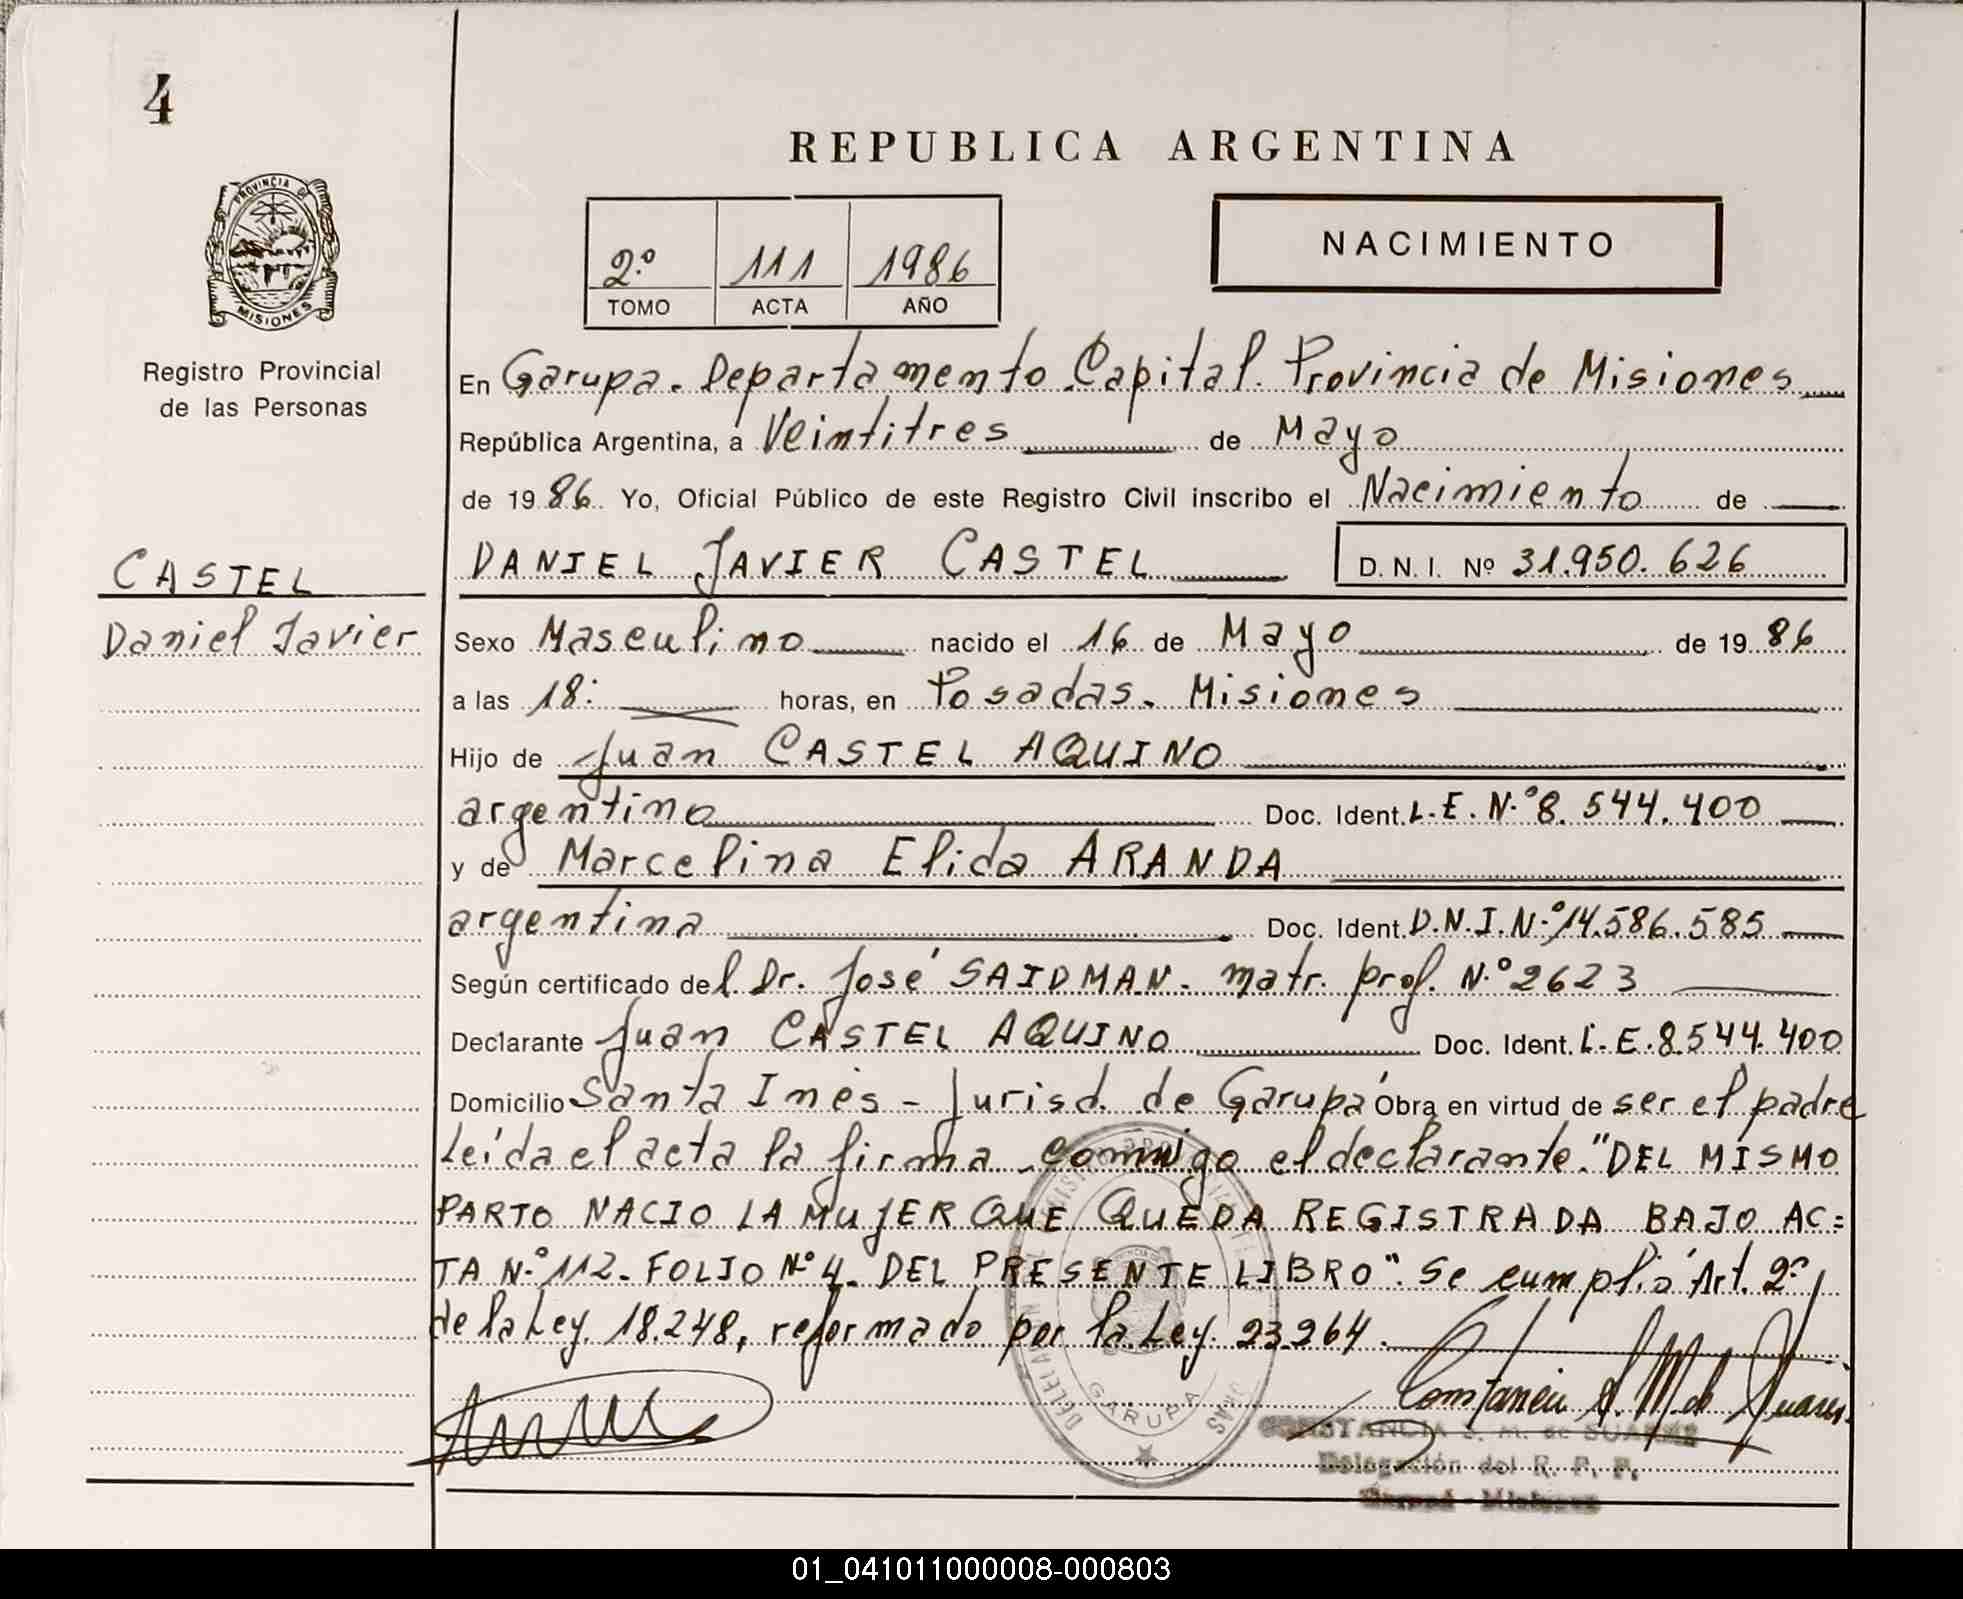 4
REPUBLICA ARGENTINA
PROVINCIA DE
MISIONES
Registro Provincial
de las Personas
2º 111 1986
TOMO ACTA AÑO
NACIMIENTO
En Garupa. Departamento Capital. Provincia de Misiones
República Argentina, a Veintitres de Mayo
de 1986. Yo, Oficial Público de este Registro Civil inscribo el Nacimiento de
CASTEL
Daniel Javier
DANIEL JAVIER CASTEL D. N. I. Nº 31.950.626
Sexo Masculino nacido el 16 de Mayo de 1986
a las 18: horas, en Posadas. Misiones
Hijo de Juan CASTEL AQUINO
argentino Doc. Ident. L.E. Nº 8.544.400
y de Marcelina Elida ARANDA
argentina Doc. Ident. D.N.I. Nº 14.586.585
Según certificado del Dr. José SAIDMAN. matr. prof. Nº 2623
Declarante Juan CASTEL AQUINO Doc. Ident. L.E. 8.544.400
Domicilio Santa Inés - Jurisd. de Garupá Obra en virtud de ser el padre
Leída el acta la firma conmigo el declarante. "DEL MISMO
PARTO NACIO LA MUJER QUE QUEDA REGISTRADA BAJO AC=
TA Nº 112. FOLIO Nº 4. DEL PRESENTE LIBRO". Se cumplió Art. 2º
de la Ley 18.248, reformado por la Ley. 23.264.
GARUPA
Constancia S. M. de Suarez
CONSTANCIA S. M. de SUAREZ
Delegación del R. P. P.
Garupá - Misiones
01_041011000008-000803